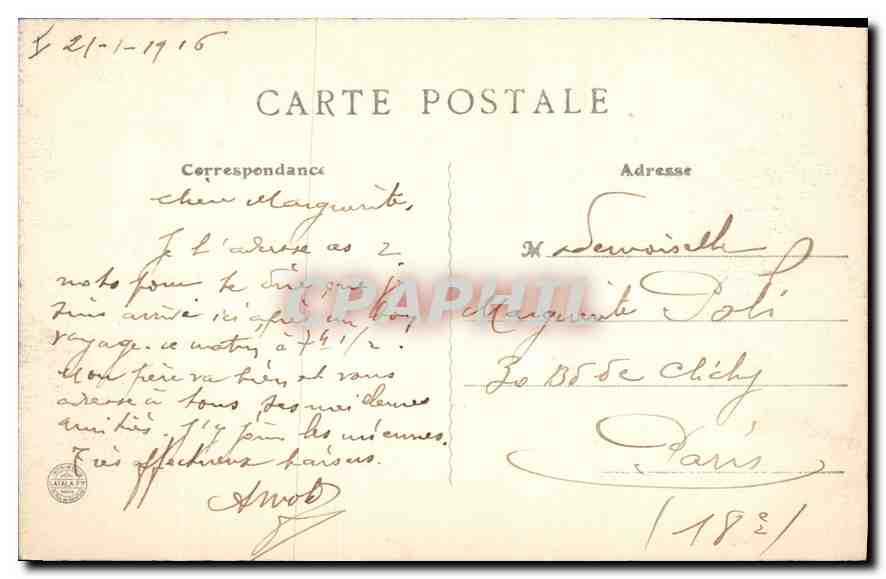 21-1-1916
CARTE POSTALE
Correspondance
Adresse
Chère Marguerite,
Je t'adresse ces 2
mots pour te dire que je
suis arrivé ici, après un bon
voyage ce matin à 7h 1/2.
Mon père va bien et vous
adresse à tous ses meilleures
amitiés. J'y joins les miennes.
Très affectueux baisers.
Mademoiselle
Marguerite Poli
30 Bd de Clichy
Paris
(18e)
CPAPHIL